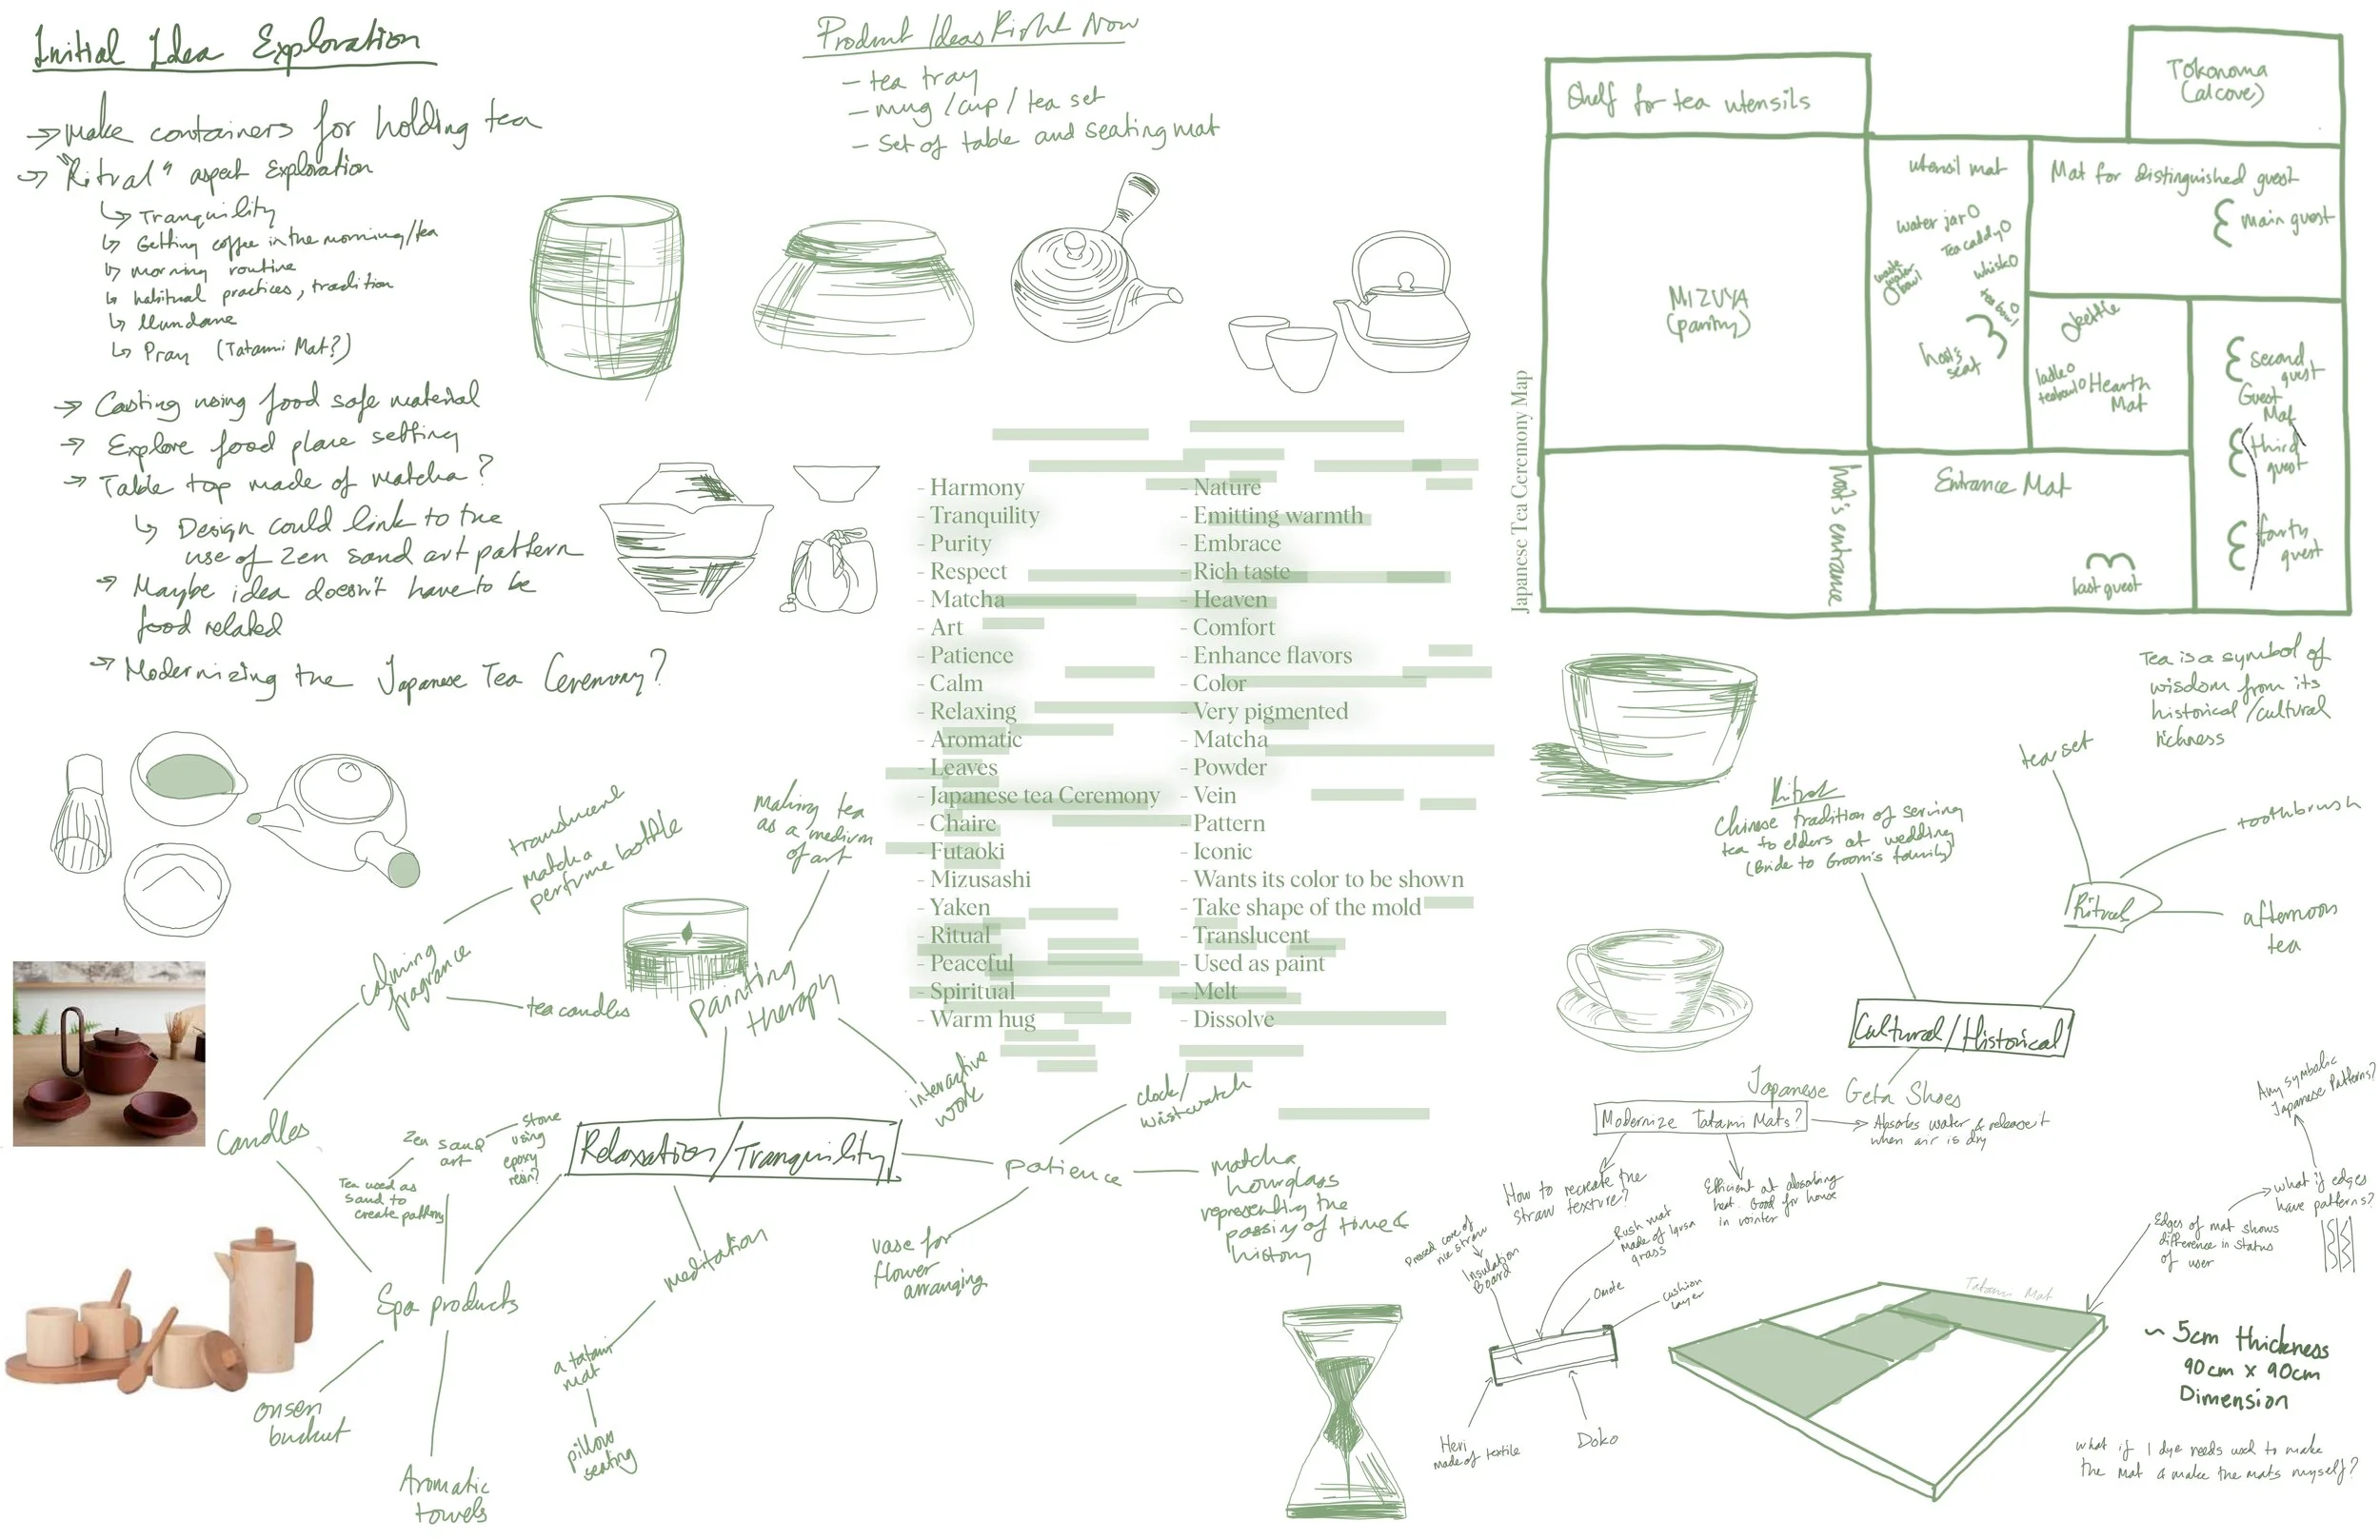 Initial Idea Exploration
→ Make containers for holding tea
→ "Ritual" aspect Exploration
↳ Tranquility
↳ Getting coffee in the morning/tea
↳ morning routine
↳ habitual practices, tradition
↳ Mundane
↳ Pray (Tatami Mat?)
→ Casting using food safe material
→ Explore food place setting
→ Table top made of matcha?
↳ Design could link to the
use of zen sand art pattern
→ Maybe idea doesn't have to be
food related
→ Modernizing the Japanese Tea Ceremony?
Product Ideas Right Now
- tea tray
- mug / cup / tea set
- Set of table and seating mat
Japanese Tea Ceremony Map
Shelf for tea utensils
Tokonoma
(alcove)
MIZUYA
(pantry)
utensil mat
water jar
Tea caddy
waste
water
bowl
whisk
tea
bowl
host's
seat
Mat for distinguished guest
main guest
kettle
ladle
teabowl
Hearth
Mat
second
guest
Guest
Mat
third
guest
fourth
guest
host's entrance
Entrance Mat
last guest
- Harmony
- Tranquility
- Purity
- Respect
- Matcha
- Art
- Patience
- Calm
- Relaxing
- Aromatic
- Leaves
- Japanese tea Ceremony
- Chaire
- Futaoki
- Mizusashi
- Yaken
- Ritual
- Peaceful
- Spiritual
- Warm hug
- Nature
- Emitting warmth
- Embrace
- Rich taste
- Heaven
- Comfort
- Enhance flavors
- Color
- Very pigmented
- Matcha
- Powder
- Vein
- Pattern
- Iconic
- Wants its color to be shown
- Take shape of the mold
- Translucent
- Used as paint
- Melt
- Dissolve
Relaxation/Tranquility
painting
therapy
making tea
as a medium
of art
interactive
work
patience
clock/
wristwatch
matcha
hourglass
representing the
passing of time &
history
vase for
flower
arranging
meditation
a tatami
mat
pillow
seating
Spa products
Zen sand
art
Stone
using
epoxy
resin?
Tea used as
sand to
create pattern
onsen
bucket
Aromatic
towels
Candles
calming
fragrance
tea candles
translucent
matcha
perfume bottle
Cultural/Historical
Ritual
Chinese tradition of serving
tea to elders at wedding
(Bride to Groom's family)
Ritual
tea set
toothbrush
afternoon
tea
Tea is a symbol of
wisdom from its
historical/cultural
richness
Japanese Geta Shoes
Modernize Tatami Mats?
Absorbs water & release it
when air is dry
How to recreate the
straw texture?
Efficient at absorbing
heat. Good for house
in winter
Pressed core of
rice straw
Insulation
Board
Rush mat
made of igusa
grass
Omote
cushion
layer
Heri
made of textile
Doko
Any symbolic
Japanese Patterns?
what if edges
have patterns?
Edges of mat shows
difference in status
of user
Tatami Mat
~ 5cm thickness
90cm x 90cm
Dimension
what if I dye reeds used to make
the mat & make the mats myself?